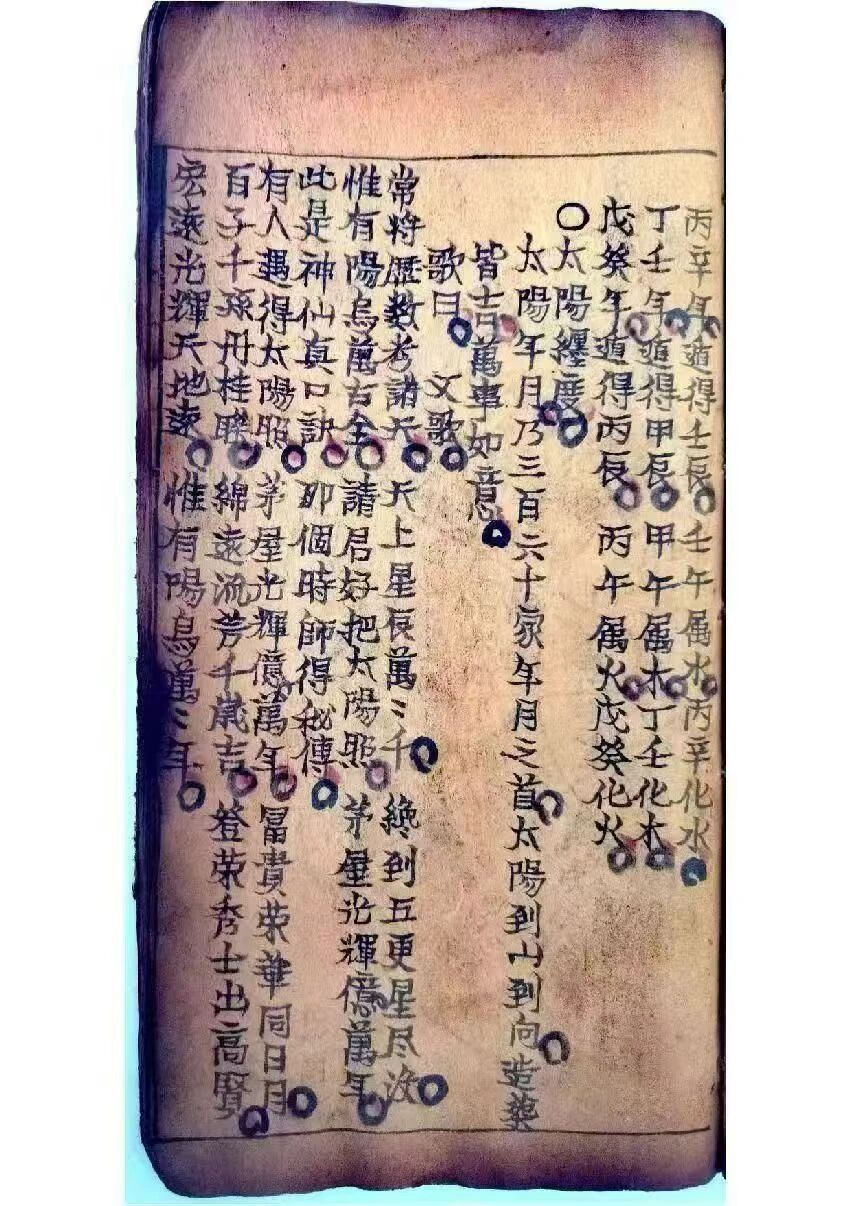 丙辛年遁得壬辰 壬午属水丙辛化水
丁壬年遁得甲辰 甲午属木丁壬化木
戊癸年遁得丙辰 丙午属火戊癸化火
〇太陽纏度
太陽年月乃三百六十家年月之首太陽到山到向造葬
皆吉萬事如意
歌曰 文歌
常將歷数考諸天 天上星辰萬〻千 終到五更星尽没
惟有陽烏萬古全 請君好把太陽照 茅屋光輝億萬年
此是神仙真口訣 那個時師得秘傳
有人遇得太陽照 茅屋光輝億萬年 冨貴荣華同日月
百子千孫丹桂聮 綿遠流芳千歲吉 登荣秀士出高賢
宏遠光輝天地遠 惟有陽烏萬〻年